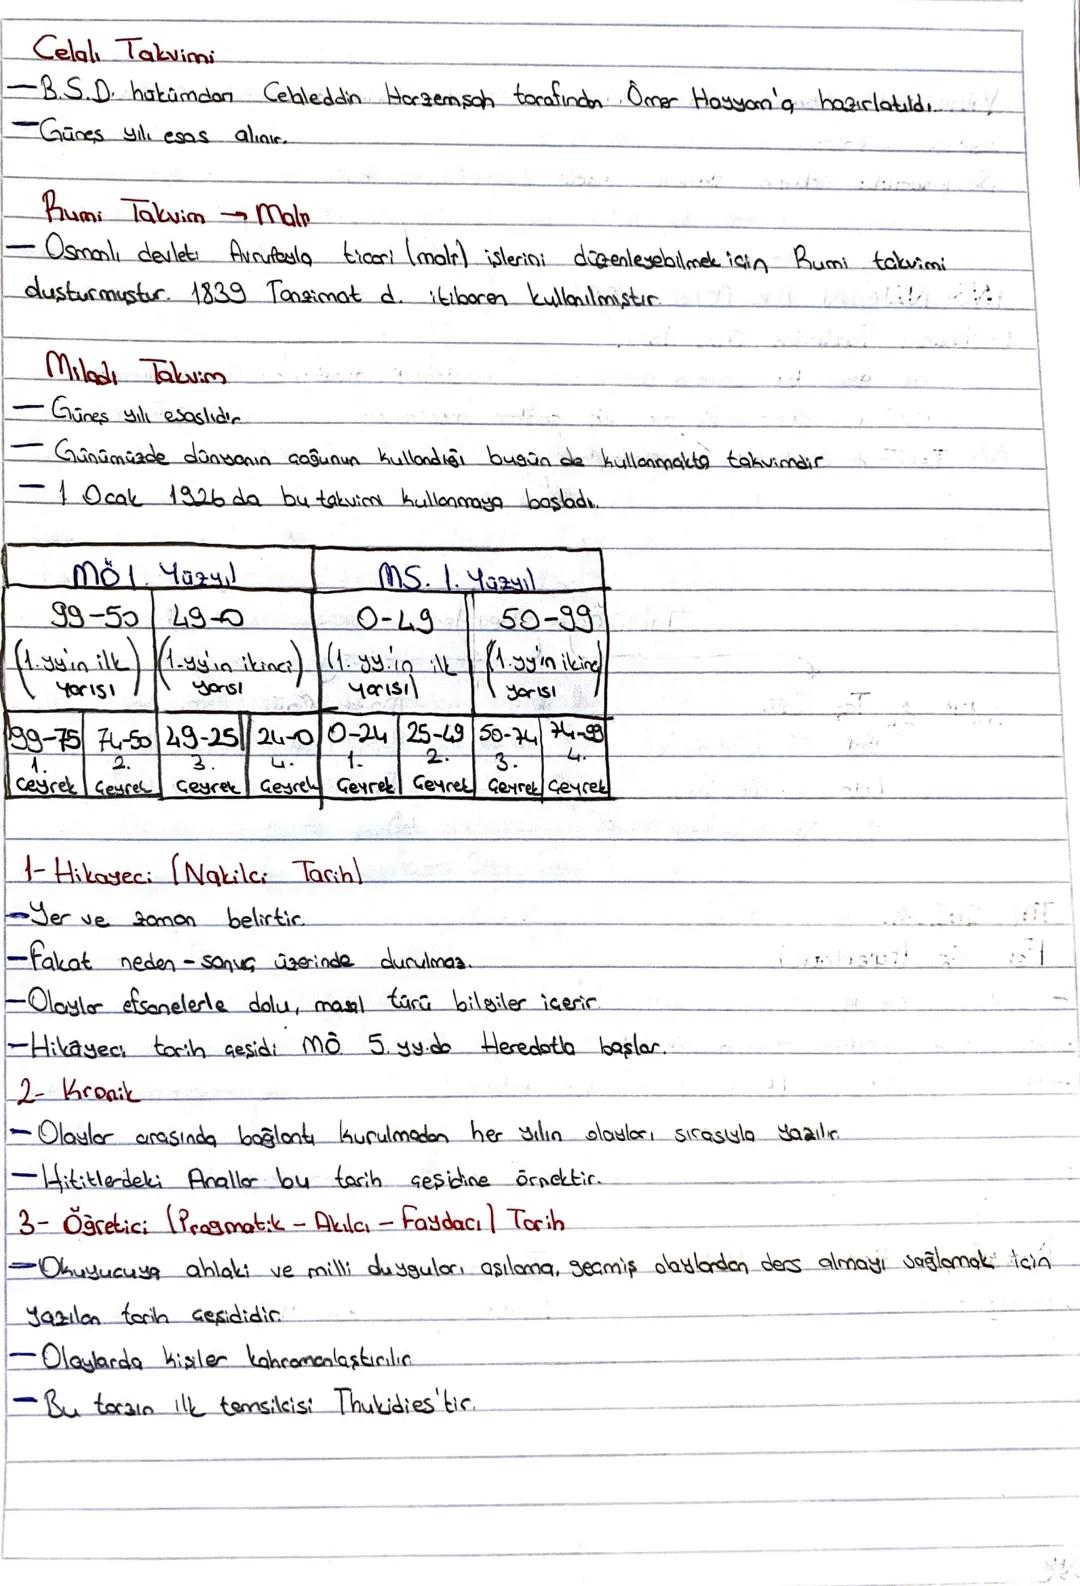 Celalı Takvimi
— B.S.D. hükümdarı Celaleddin Harzemşah tarafından Ömer Hayyam'a hazırlatıldı.
— Güneş yılı esas alınır.
Rumi Takvim → Mali
— Osmanlı devleti Avrupayla ticari (mali) işlerini düzenleyebilmek için Rumi takvimi
dusturmuştur. 1839 Tanzimat d. itibaren kullanılmıştır.
Miladı Takvim
— Güneş yılı esaslıdır
— Günümüzde dünyanın çoğunun kullandığı bugün de kullanmakta takvimdir
— 1 Ocak 1926 da bu takvimi kullanmaya başladı.
MÖ 1. Yüzyıl MS. 1. Yüzyıl
99-50 49-0 0-49 50-99
(1.yy'ın ilk yarısı (1.yy'ın ikinci) yarısı (1.yy.'ın ilk yarısı) (1.yy'ın ikinci yarısı
99-75 74-50 49-25 24-0 0-24 25-49 50-74 74-99
1. 2. 3. 4. 1. 2. 3. 4.
Çeyrek Çeyrek Çeyrek Çeyrek Çeyrek Çeyrek Çeyrek Çeyrek
1- Hikayeci (Nakilci Tarih)
— Yer ve zaman belirtir.
— Fakat neden - sonuç üzerinde durulmaz.
— Olaylar efsanelerle dolu, masal türü bilgiler içerir.
— Hikâyeci tarih çeşidi MÖ 5. yy.da Heredotla başlar.
2- Kronik
— Olaylar arasında bağlantı kurulmadan her yılın olayları sırasıyla yazılır.
— Hititlerdeki Anallar bu tarih çeşidine örnektir.
3- Öğretici (Pragmatik - Akılcı - Faydacı) Tarih
— Okuyucuya ahlaki ve milli duyguları aşılama, geçmiş olaylardan ders almayı sağlamak için
yazılan tarih çeşididir.
— Olaylarda kişiler kahramanlaştırılır.
— Bu tarzın ilk temsilcisi Thukidies'tir.